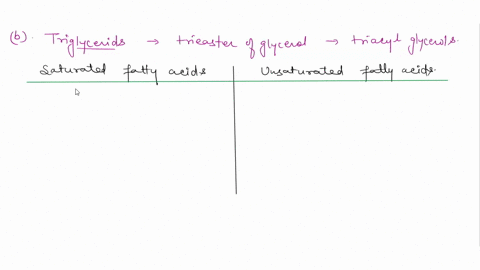 (b). Triglycerids → trieaster of glycerol → triacyl glycerols.
Saturated fatty acids Unsaturated fatty acids.